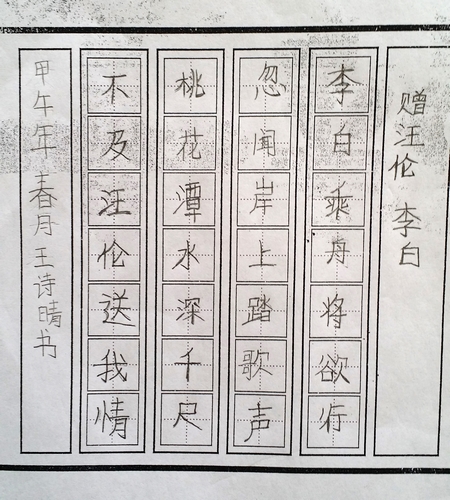 赠汪伦 李白
李白乘舟将欲行
忽闻岸上踏歌声
桃花潭水深千尺
不及汪伦送我情
甲午年 春月 王诗晴书